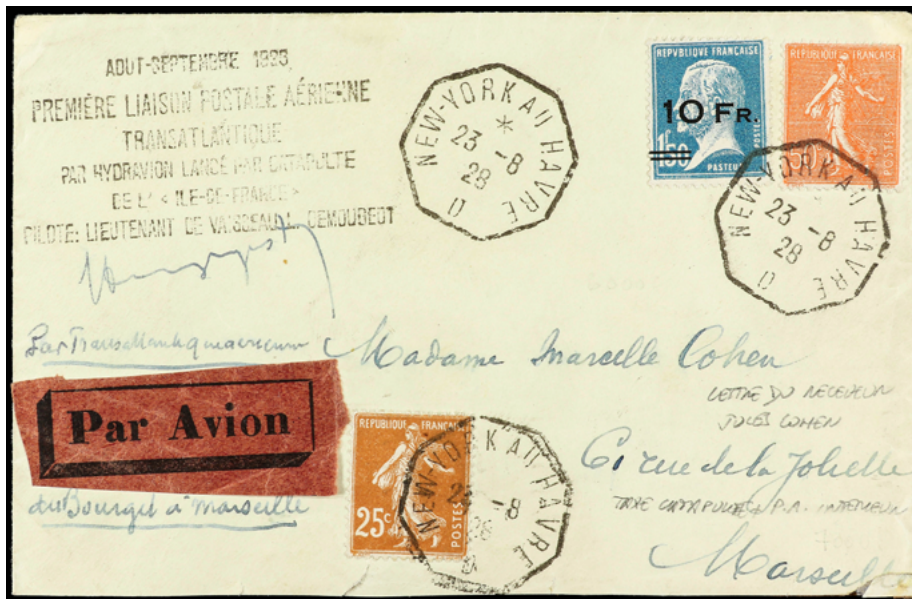 AOUT-SEPTEMBRE 1928,
PREMIÈRE LIAISON POSTALE AÉRIENNE
TRANSATLANTIQUE
PAR HYDRAVION LANCÉ PAR CATAPULTE
DE L' « ILE-DE-FRANCE »
PILOTE: LIEUTENANT DE VAISSEAU L. DEMOUGEOT
NEW-YORK AU HAVRE
*
23 -8
28
D
REPVBLIQVE FRANÇAISE
10 Fr.
1F50
PASTEUR
POSTES
REPUBLIQUE FRANÇAISE
50c
POSTES
NEW-YORK AU HAVRE
23 -8
28
D
Par Transatlantique aérienne
Par Avion
du Bourget à Marseille
Madame Marcelle Cohen
LETTRE DU RECEVEUR
JULES COHEN
61 rue de la Joliette
TAXE CATAPULTE + P.A. INTERIEUR
Marseille
REPUBLIQUE FRANÇAISE
25c
POSTES
NEW-YORK AU HAVRE
23 -8
28